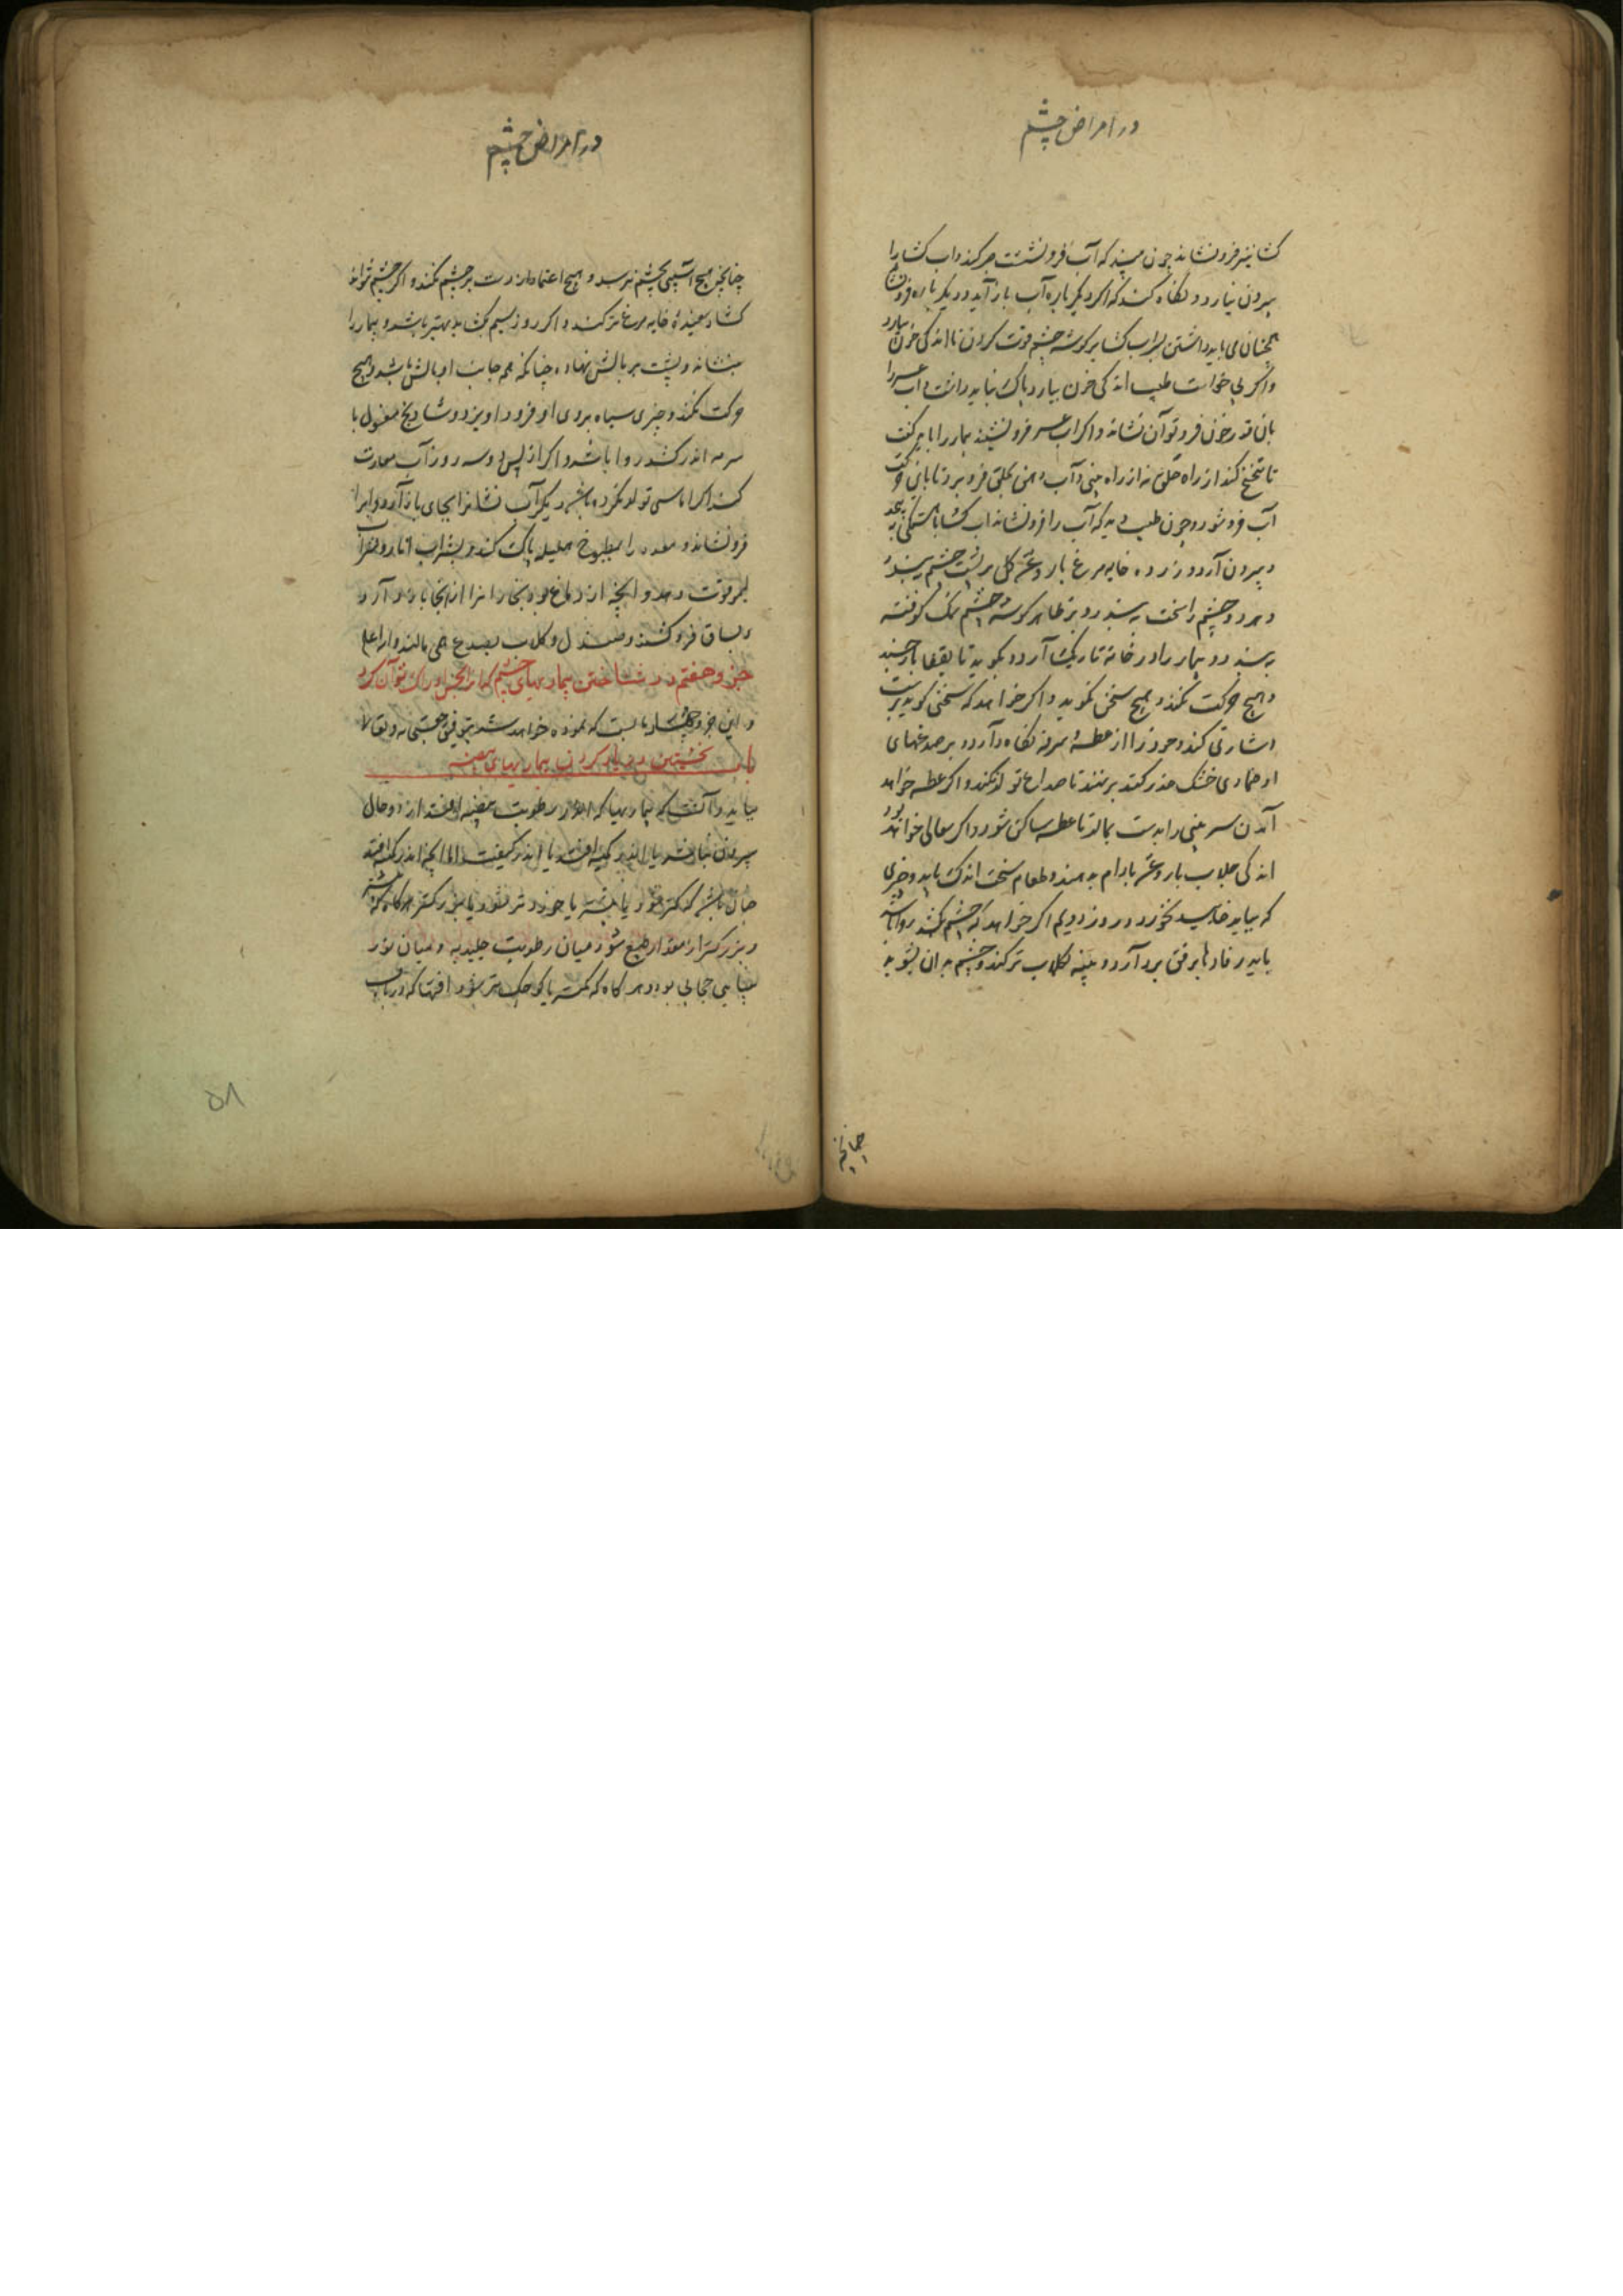 در امراض چشم
فرونشاند چون ببیند که آب فرو نشست صبر کند و آب
بیرون نیارد و نگاه کند که اگر دیگر باره آب باز آید و دیگر باره فرونشاند
همچنان می باید داشتن بر گوشه چشم قوت کردن تا اندکی خون بیارد
واگر بی خواست طبیب اندکی خون بیارد باک نباید داشت و آب
بان قدر خون فرو توان نشاند و اگر آب فرو ننشیند بیمار را باید گفت
تا تنحنح کند از راه حلق نه از راه بینی و آب دهن بحلق فرو برد تا بان حرکت
آب فرو شود و چون طبیب دید که آب را فرونشاند باهستگی
و بیرون آرد و زرده خایه مرغ با روغن گل بر پشت چشم
و هر دو چشم را سخت ببندد و بر ظاهر گوشه چشم نمک کوفته
ببندد و بیمار را در خانه تاریک آرد و بگوید تا بقفا باز خسبد
و هیچ حرکت نکند و هیچ سخن نگوید و اگر خواهد که سخنی گوید بدست
اشارتی کند و خود را از عطسه و سرفه نگاه دارد و بر صدغهای
او ضمادی خشک بر نهند تا صداع تولد نکند و اگر عطسه خواهد
آمدن سر بینی را بدست بمالد تا عطسه ساکن شود و اگر سعالی خواهد بود
اندکی جلاب با روغن بادام بدهند و طعام سخت اندک باید و چیزی
که بباید خایید نخورد و روز دویم اگر خواهد که چشم بگشد روا باشد
باید رفادها برفق بردارد و پنبه بگلاب تر کند و چشم بدان بشوید
چنانچه
در امراض چشم
چنانچه هیچ آسیبی بچشم نرسد و هیچ اعتماد از دست بر چشم نکند و اگر چشم تواند
گشاد سفیده خایه مرغ تر کند و اگر روز سیم بگشاید بهتر باشد و بیمار را
بنشاند و پشت بر بالش نهاده چنانکه همه جانب او بالش باشد و هیچ
حرکت نکند و چیزی سیاه بروی او فرود آویزد و شادنج مغسول با
سرمه اندر کشد روا باشد و اگر از پس دو سه روز آب معاودت
کند اگر آماسی تولد نکرده باشد دیگر آب نشانرا بجای باز آرد و آبرا
فرونشاند و معده را بمطبوخ هلیله پاک کند و بشراب انار
قوت دهد و آنچه از دماغ بود بخار انرا از آنجا باز دارد
و بساق فرو کشند و صندل و گلاب بصدغ همی مالند والله اعلم
جزو هفتم در شناختن بیماریهای چشم که آنرا بحس ادراک نتوان کرد
و این جزو چهار بابست که نموده خواهد شد بتوفیق حق سبحانه و تعالی
باب نخستین در یاد کردن بیماریهای بیضیه
بباید دانست که بیماریها که اندر رطوبت بیضیه افتد از دو حال
بیرون نباشد یا اندر کمیه افتد یا اندر کیفیت اما آنچه اندر کمیه افتد
چنان باشد که کمتر شود یا بیشتر یا خورد تر شود یا بزرگتر هرگاه که بیشتر
و بزرگتر از مقدار طبع شود میان رطوبت جلیدیه و میان نور
بینایی حجابی بود و هرگاه که کمتر یا کوچک تر شود آفتها که در باب
۵۸